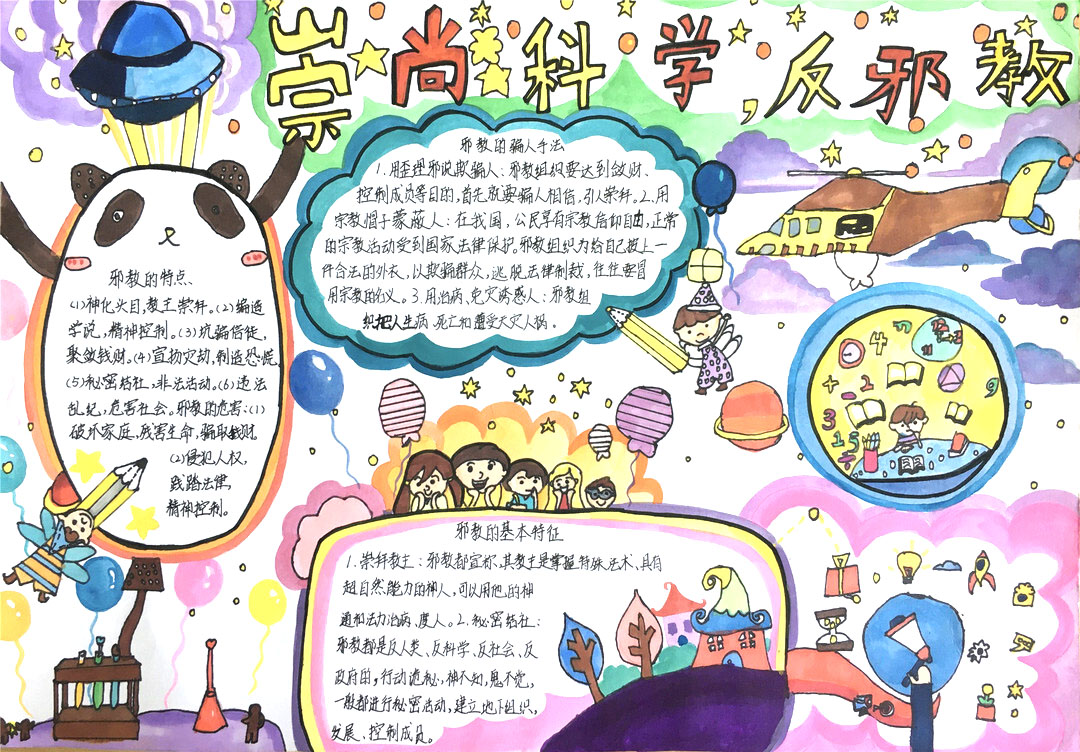 崇尚科学,反邪教
邪教的骗人手法
1.用歪理邪说欺骗人:邪教组织要达到敛财、
控制成员等目的,首先就要骗人相信,引人崇拜。2.用
宗教帽子蒙蔽人:在我国,公民享有宗教信仰自由,正常
的宗教活动受到国家法律保护。邪教组织为给自己披上一
件合法的外衣,以欺骗群众,逃脱法律制裁,往往要冒
用宗教的名义。3.用治病、免灾诱惑人:邪教组
织把人生病、死亡和遭受天灾人祸。
邪教的特点
(1)神化头目,教主崇拜。(2)编造
学说,精神控制。(3)坑骗信徒,
聚敛钱财。(4)宣扬灾劫,制造恐慌
(5)秘密结社,非法活动。(6)违法
乱纪,危害社会。邪教的危害:(1)
破坏家庭,残害生命,骗取钱财。
(2)侵犯人权,
践踏法律,
精神控制。
邪教的基本特征
1.崇拜教主:邪教都宣称,其教主是掌握特殊法术、具有
超自然能力的神人,可以用他的神
通和法力治病、度人。2.秘密结社:
邪教都是反人类、反科学、反社会、反
政府的,行动诡秘,神不知,鬼不觉,
一般都进行秘密活动,建立地下组织,
发展、控制成员。
4
+
2
3
1 5
9